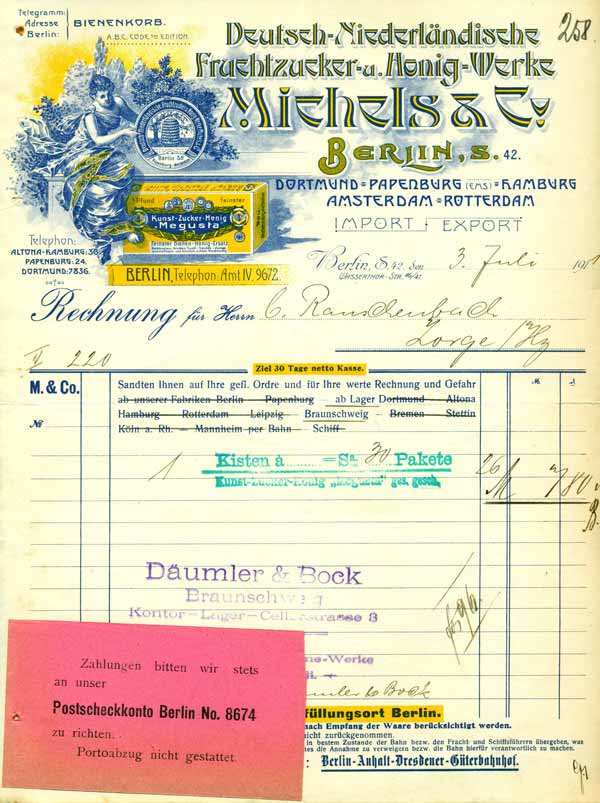 Telegramm:
Adresse
Berlin:
BIENENKORB.
A.B.C. CODE 5th EDITION
258.
Deutsch-Niederländische
Fruchtzucker- u. Honig-Werke
Michels & Co.
BERLIN, S. 42.
DORTMUND = PAPENBURG (EMS) = HAMBURG
AMSTERDAM = ROTTERDAM
IMPORT EXPORT
Berlin S.
1 Pfund Feinster
Kunst-Zucker-Honig
"Megusta"
Feinster Bienen-Honig-Ersatz
Telephon:
ALTONA-HAMBURG: 36
PAPENBURG: 24.
DORTMUND: 7836.
BERLIN, Telephon. Amt IV, 9672.
Berlin, S. 42, den 3. Juli 191
WASSERTHOR-STR. 46/47.
Rechnung für Herrn C. Rauschenbach
Zorge /Hz
220
Ziel 30 Tage netto Kasse.
M. & Co.
Sandten Ihnen auf Ihre gefl. Ordre und für Ihre werte Rechnung und Gefahr
ab unserer Fabriken Berlin — Papenburg — ab Lager Dortmund — Altona
No
Hamburg — Rotterdam — Leipzig — Braunschweig — Bremen — Stettin
Köln a. Rh. — Mannheim per Bahn — Schiff
1 Kisten á = Sa. 30 Pakete 26 M 780
Kunst-Zucker-Honig „Megusta" ges. gesch.
Däumler & Bock
Braunschweig
Kontor-Lager-Cellerstrasse 3
ne-Werke
Bock
füllungsort Berlin.
nach Empfang der Waare berücksichtigt werden.
nicht zurückgenommen.
in bestem Zustande der Bahn bezw. den Fracht- und Schiffsführern übergeben, was
es die Annahme zu verweigern bezw. die Bahn hierfür verantwortlich zu machen.
Berlin-Anhalt-Dresdener-Güterbahnhof.
Zahlungen bitten wir stets
an unser
Postscheckkonto Berlin No. 8674
zu richten.
Portoabzug nicht gestattet.